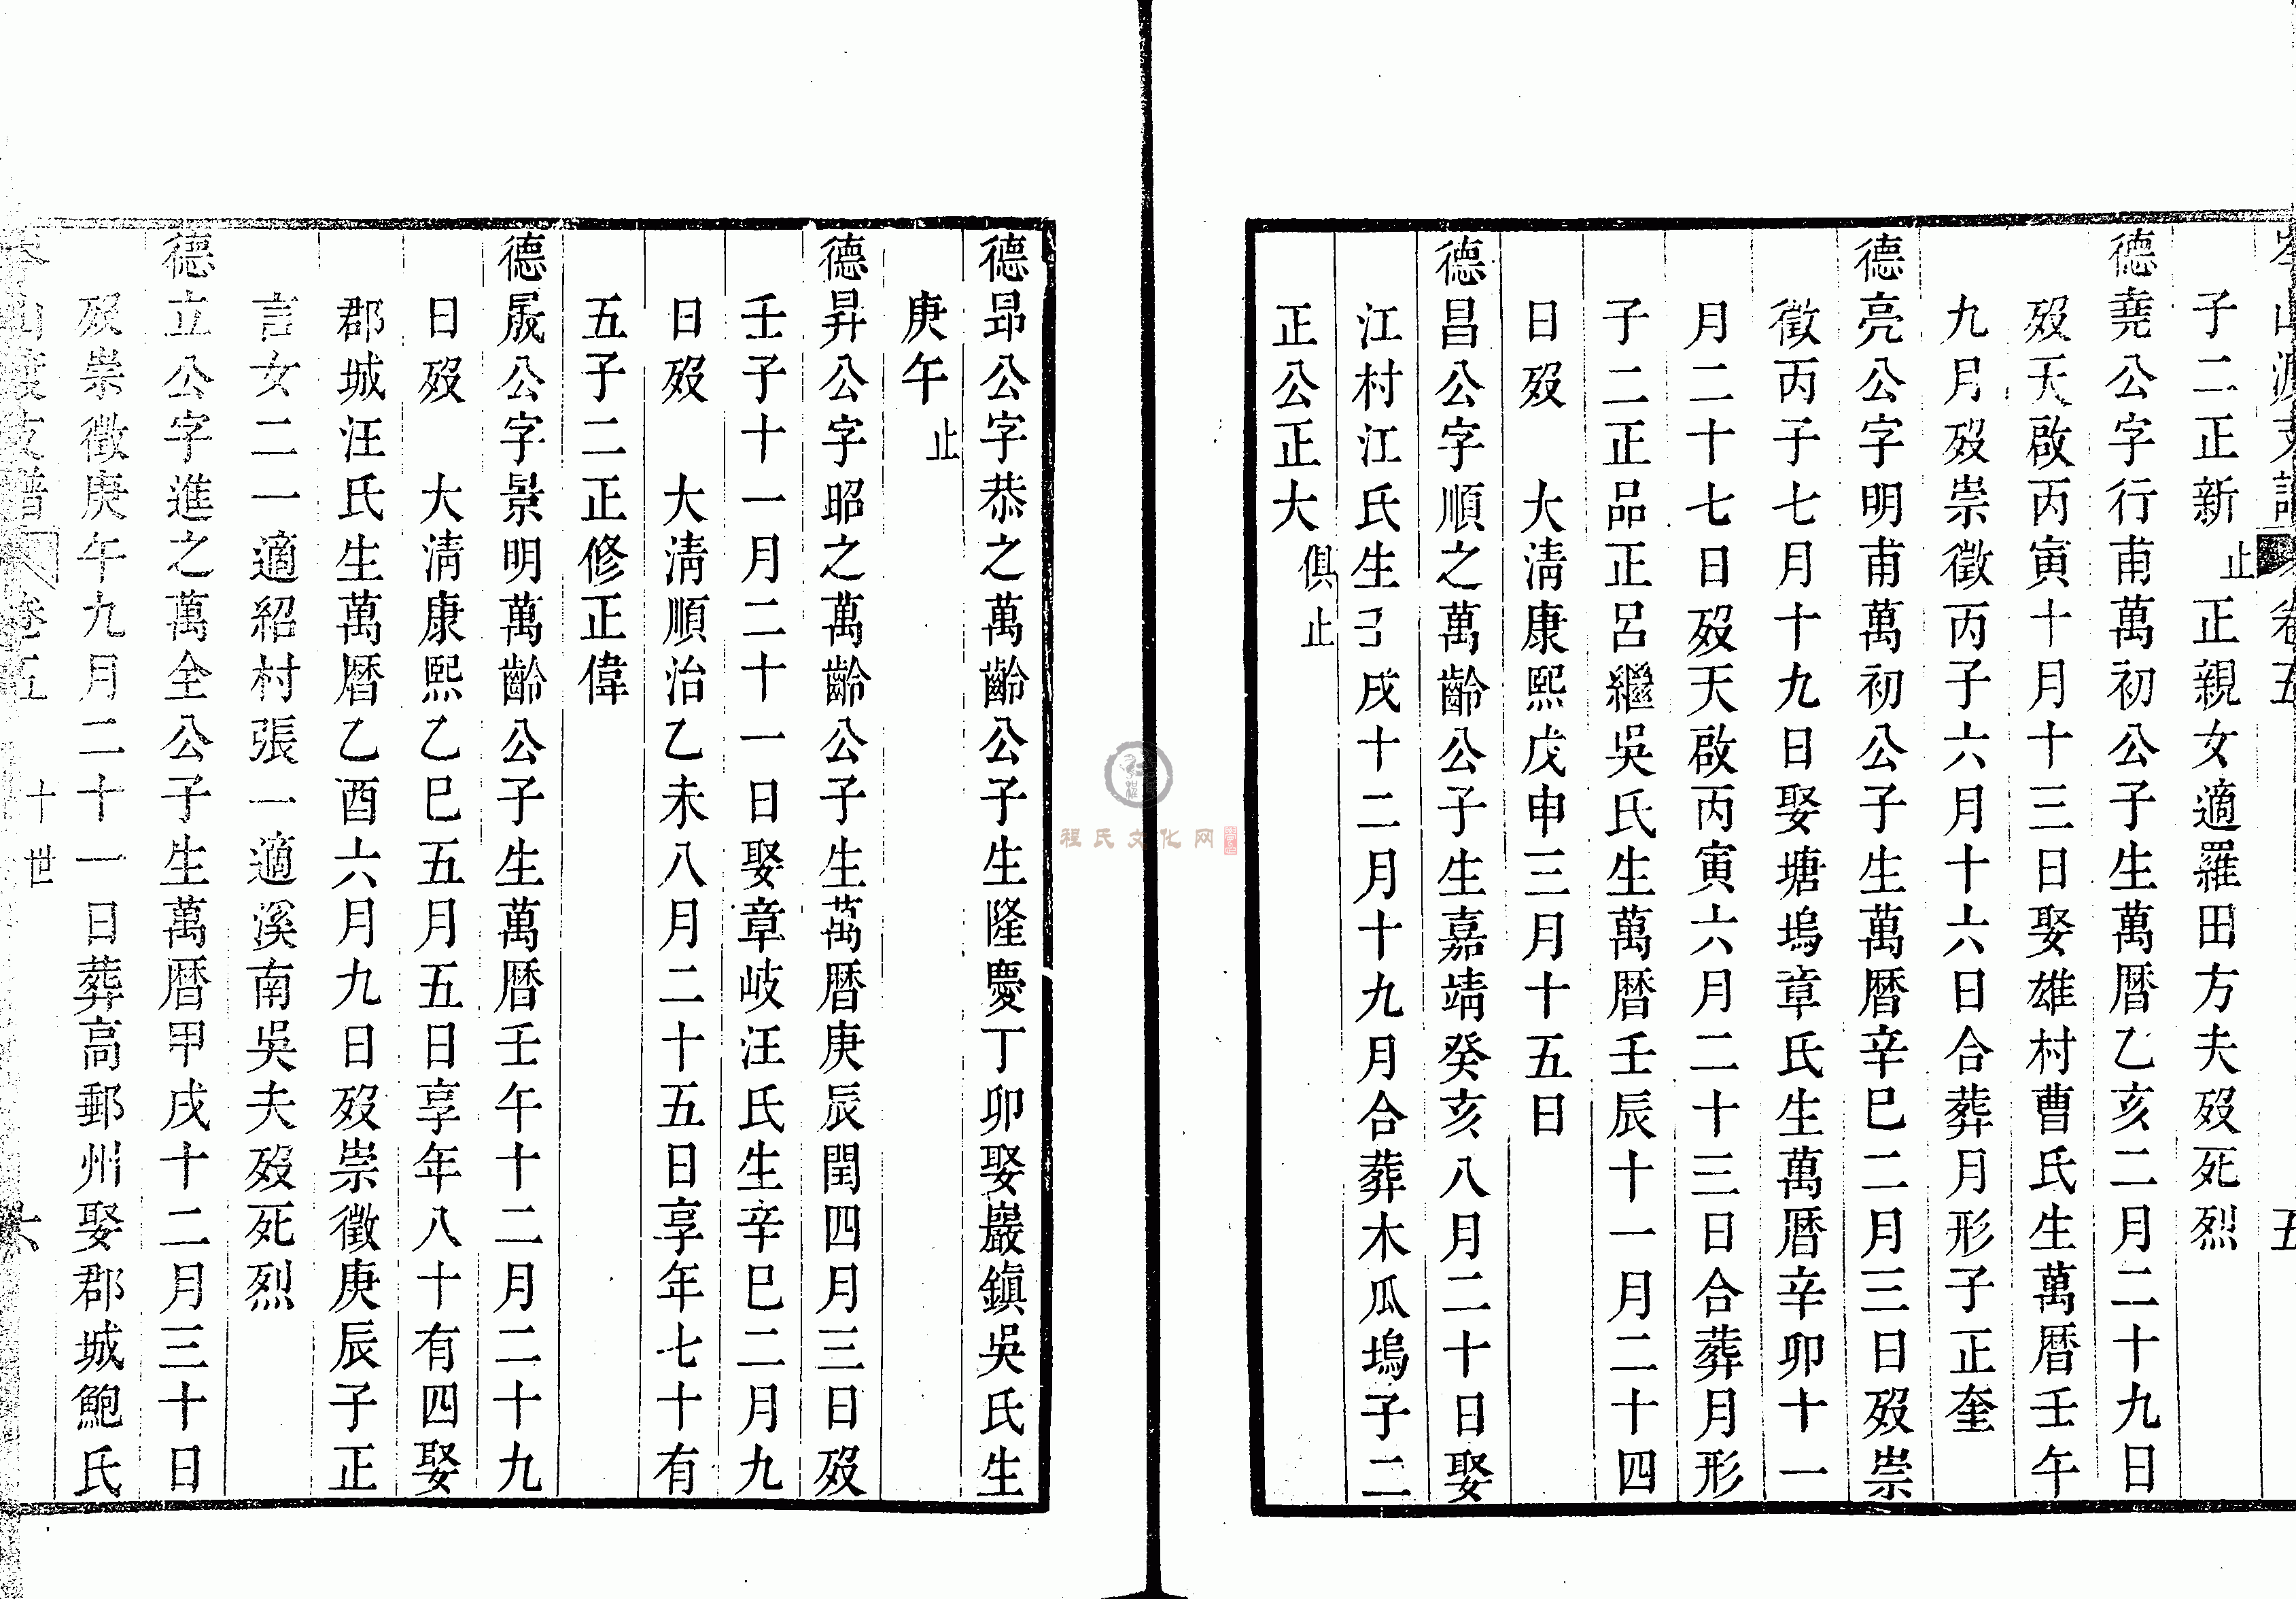 山 支譜 卷五 五
子二正新 止 正親女適羅田方夫歿死烈
德堯公字行甫萬初公子生萬曆乙亥二月二十九日
歿天啟丙寅十月十三日娶雄村曹氏生萬曆壬午
九月歿崇徵丙子六月十六日合葬月形子正奎
德亮公字明甫萬初公子生萬曆辛巳二月三日歿崇
徵丙子七月十九日娶塘塢章氏生萬曆辛卯十一
月二十七日歿天啟丙寅六月二十三日合葬月形
子二正品正呂繼吳氏生萬曆壬辰十一月二十四
日歿 大淸康熙戊申三月十五日
德昌公字順之萬齡公子生嘉靖癸亥八月二十日娶
江村江氏生 戌十二月十九月合葬木瓜塢子二
正公正大 俱止
德昻公字恭之萬齡公子生隆慶丁卯娶巖鎮吳氏生
庚午 止
德昇公字昭之萬齡公子生萬曆庚辰閏四月三日歿
壬子十一月二十一日娶章岐汪氏生辛巳二月九
日歿 大淸順治乙未八月二十五日享年七十有
五子二正修正偉
德晸公字景明萬齡公子生萬曆壬午十二月二十九
日歿 大淸康熙乙巳五月五日享年八十有四娶
郡城汪氏生萬曆乙酉六月九日歿崇徵庚辰子正
言女二一適紹村張一適溪南吳夫歿死烈
德立公字進之萬全公子生萬曆甲戌十二月三十日
歿崇徵庚午九月二十一日葬高郵州娶郡城鮑氏
山渡支譜 卷五 十世 六
程氏文化网